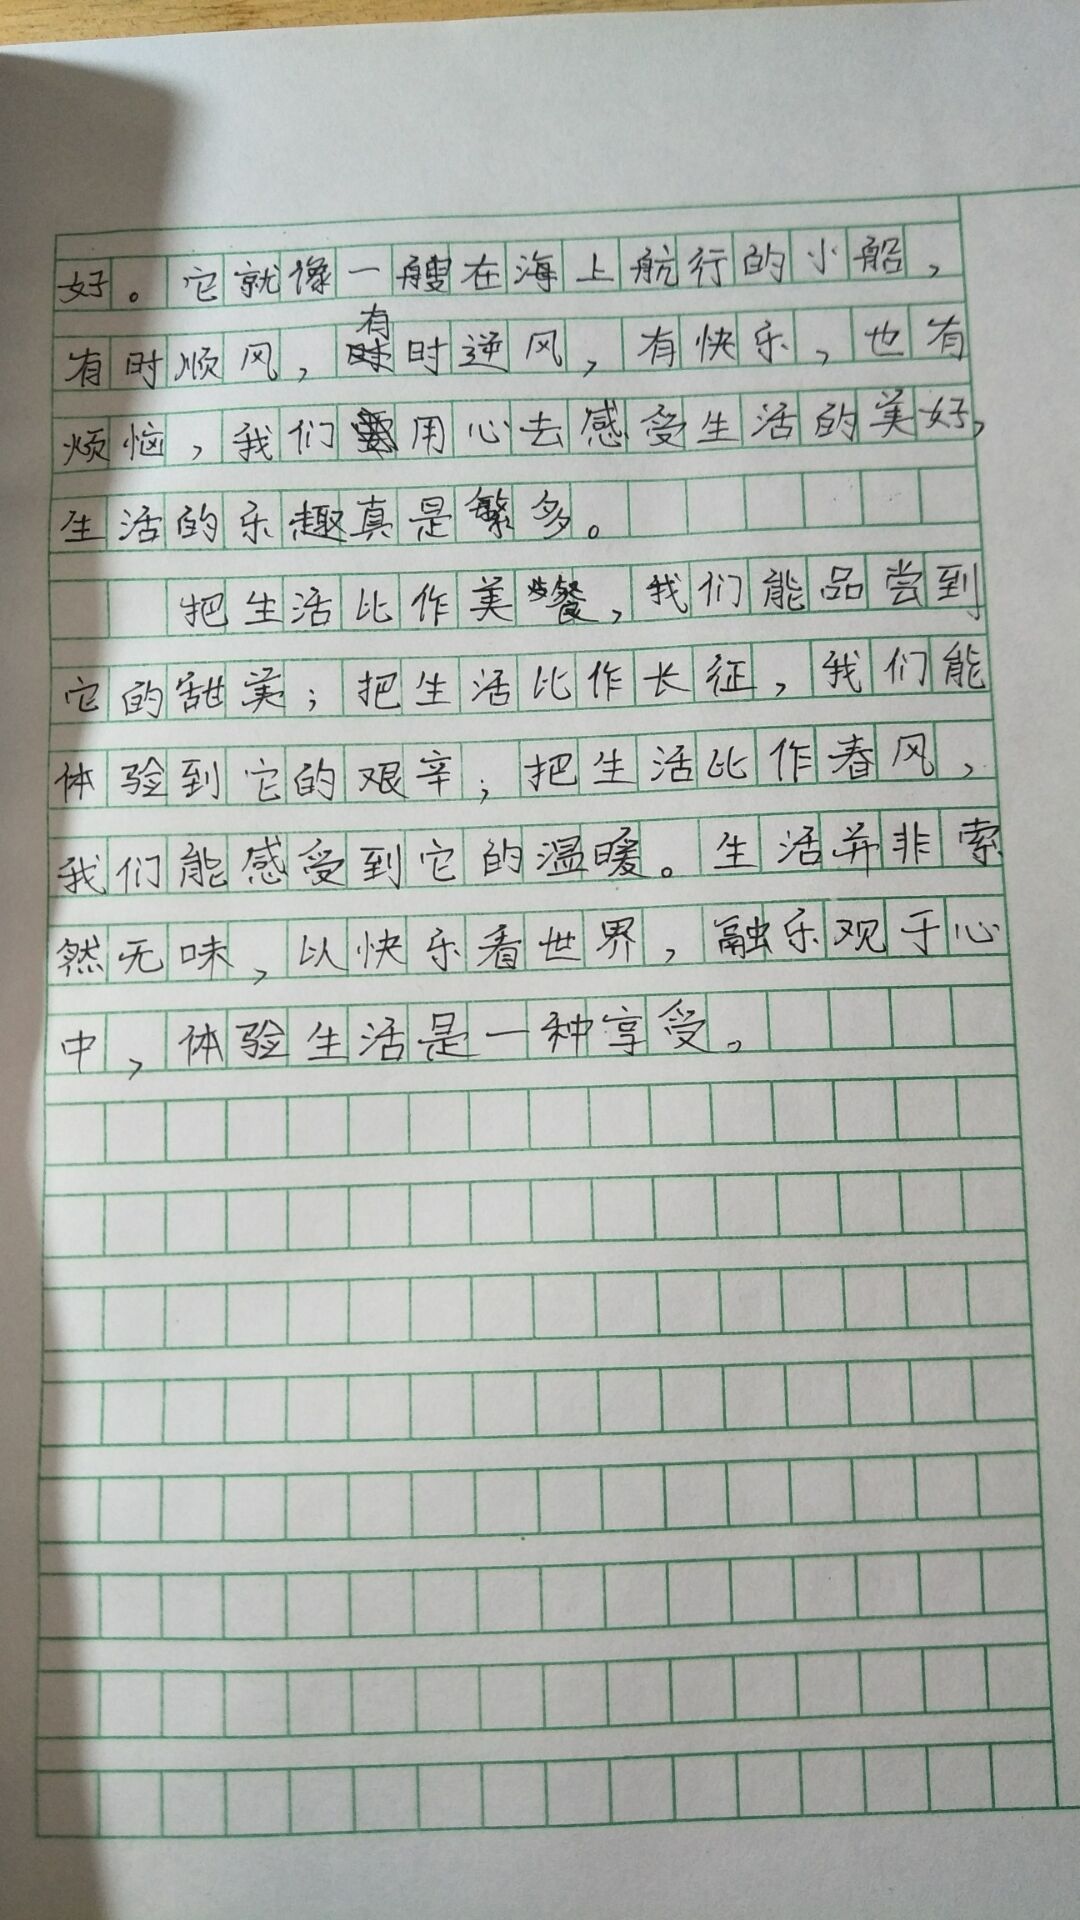 好。它就像一艘在海上航行的小船，
有时顺风，有时逆风，有快乐，也有
烦恼，我们要用心去感受生活的美好，
生活的乐趣真是繁多。
把生活比作美餐，我们能品尝到
它的甜美；把生活比作长征，我们能
体验到它的艰辛；把生活比作春风，
我们能感受到它的温暖。生活并非索
然无味，以快乐看世界，融乐观于心
中，体验生活是一种享受。